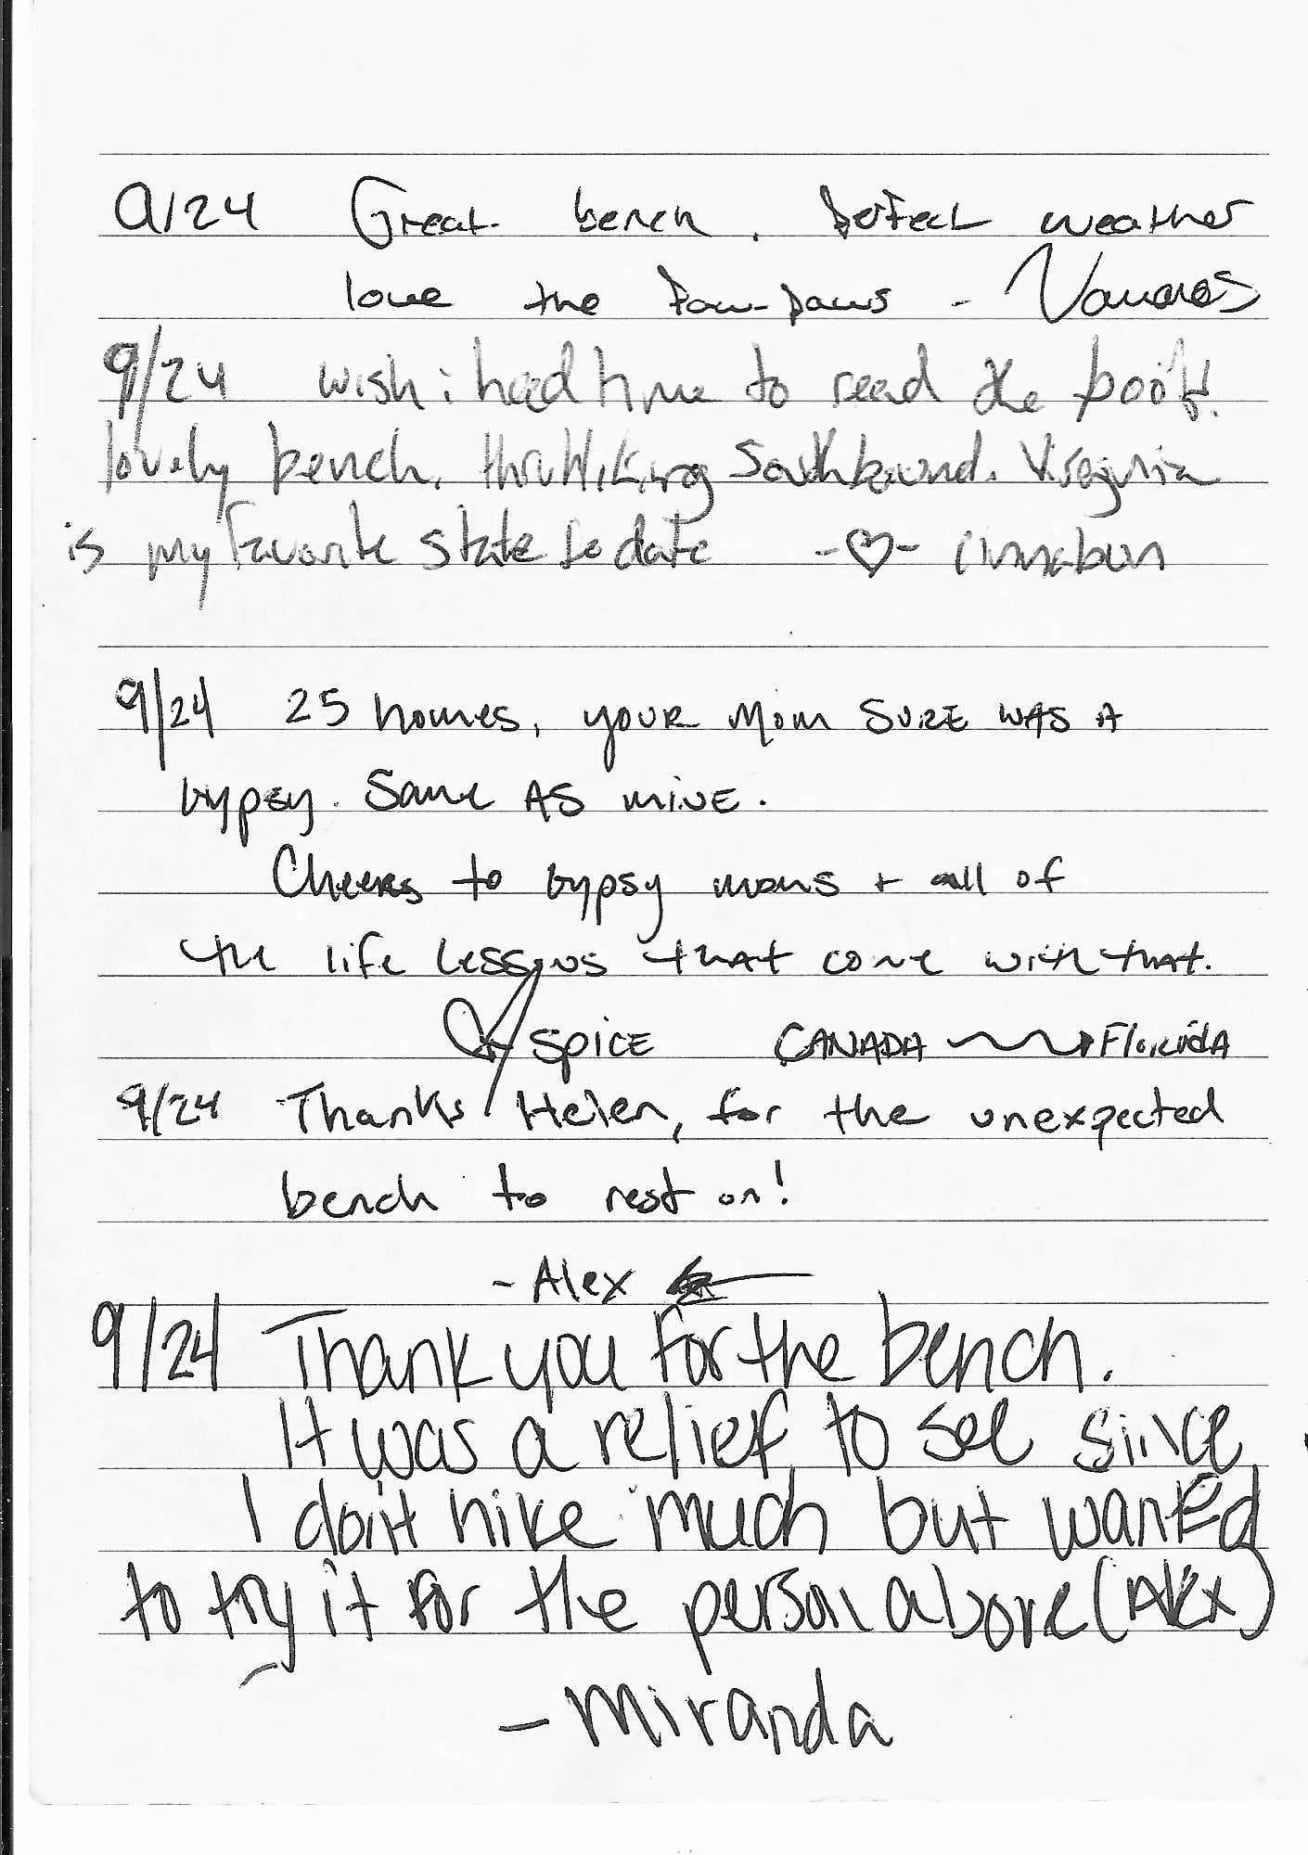 9/24 Great bench. Perfect weather
love the Paw-paws -
9/24 wish i had time to read the book!
lovely bench. thru Hiking Southbound. Virginia
is my favorite state to date -♡- cinnabun
9/24 25 homes, your Mom SURE WAS A
gypsy. Same AS MINE.
Cheers to gypsy moms + all of
the life lessons that come with that.
SPICE CANADA → FloridA
9/24 Thanks Helen, for the unexpected
bench to rest on!
- Alex
9/24 Thank you for the bench.
It was a relief to see since
I don't hike much but wanted
to try it for the person above (Alex)
- Miranda